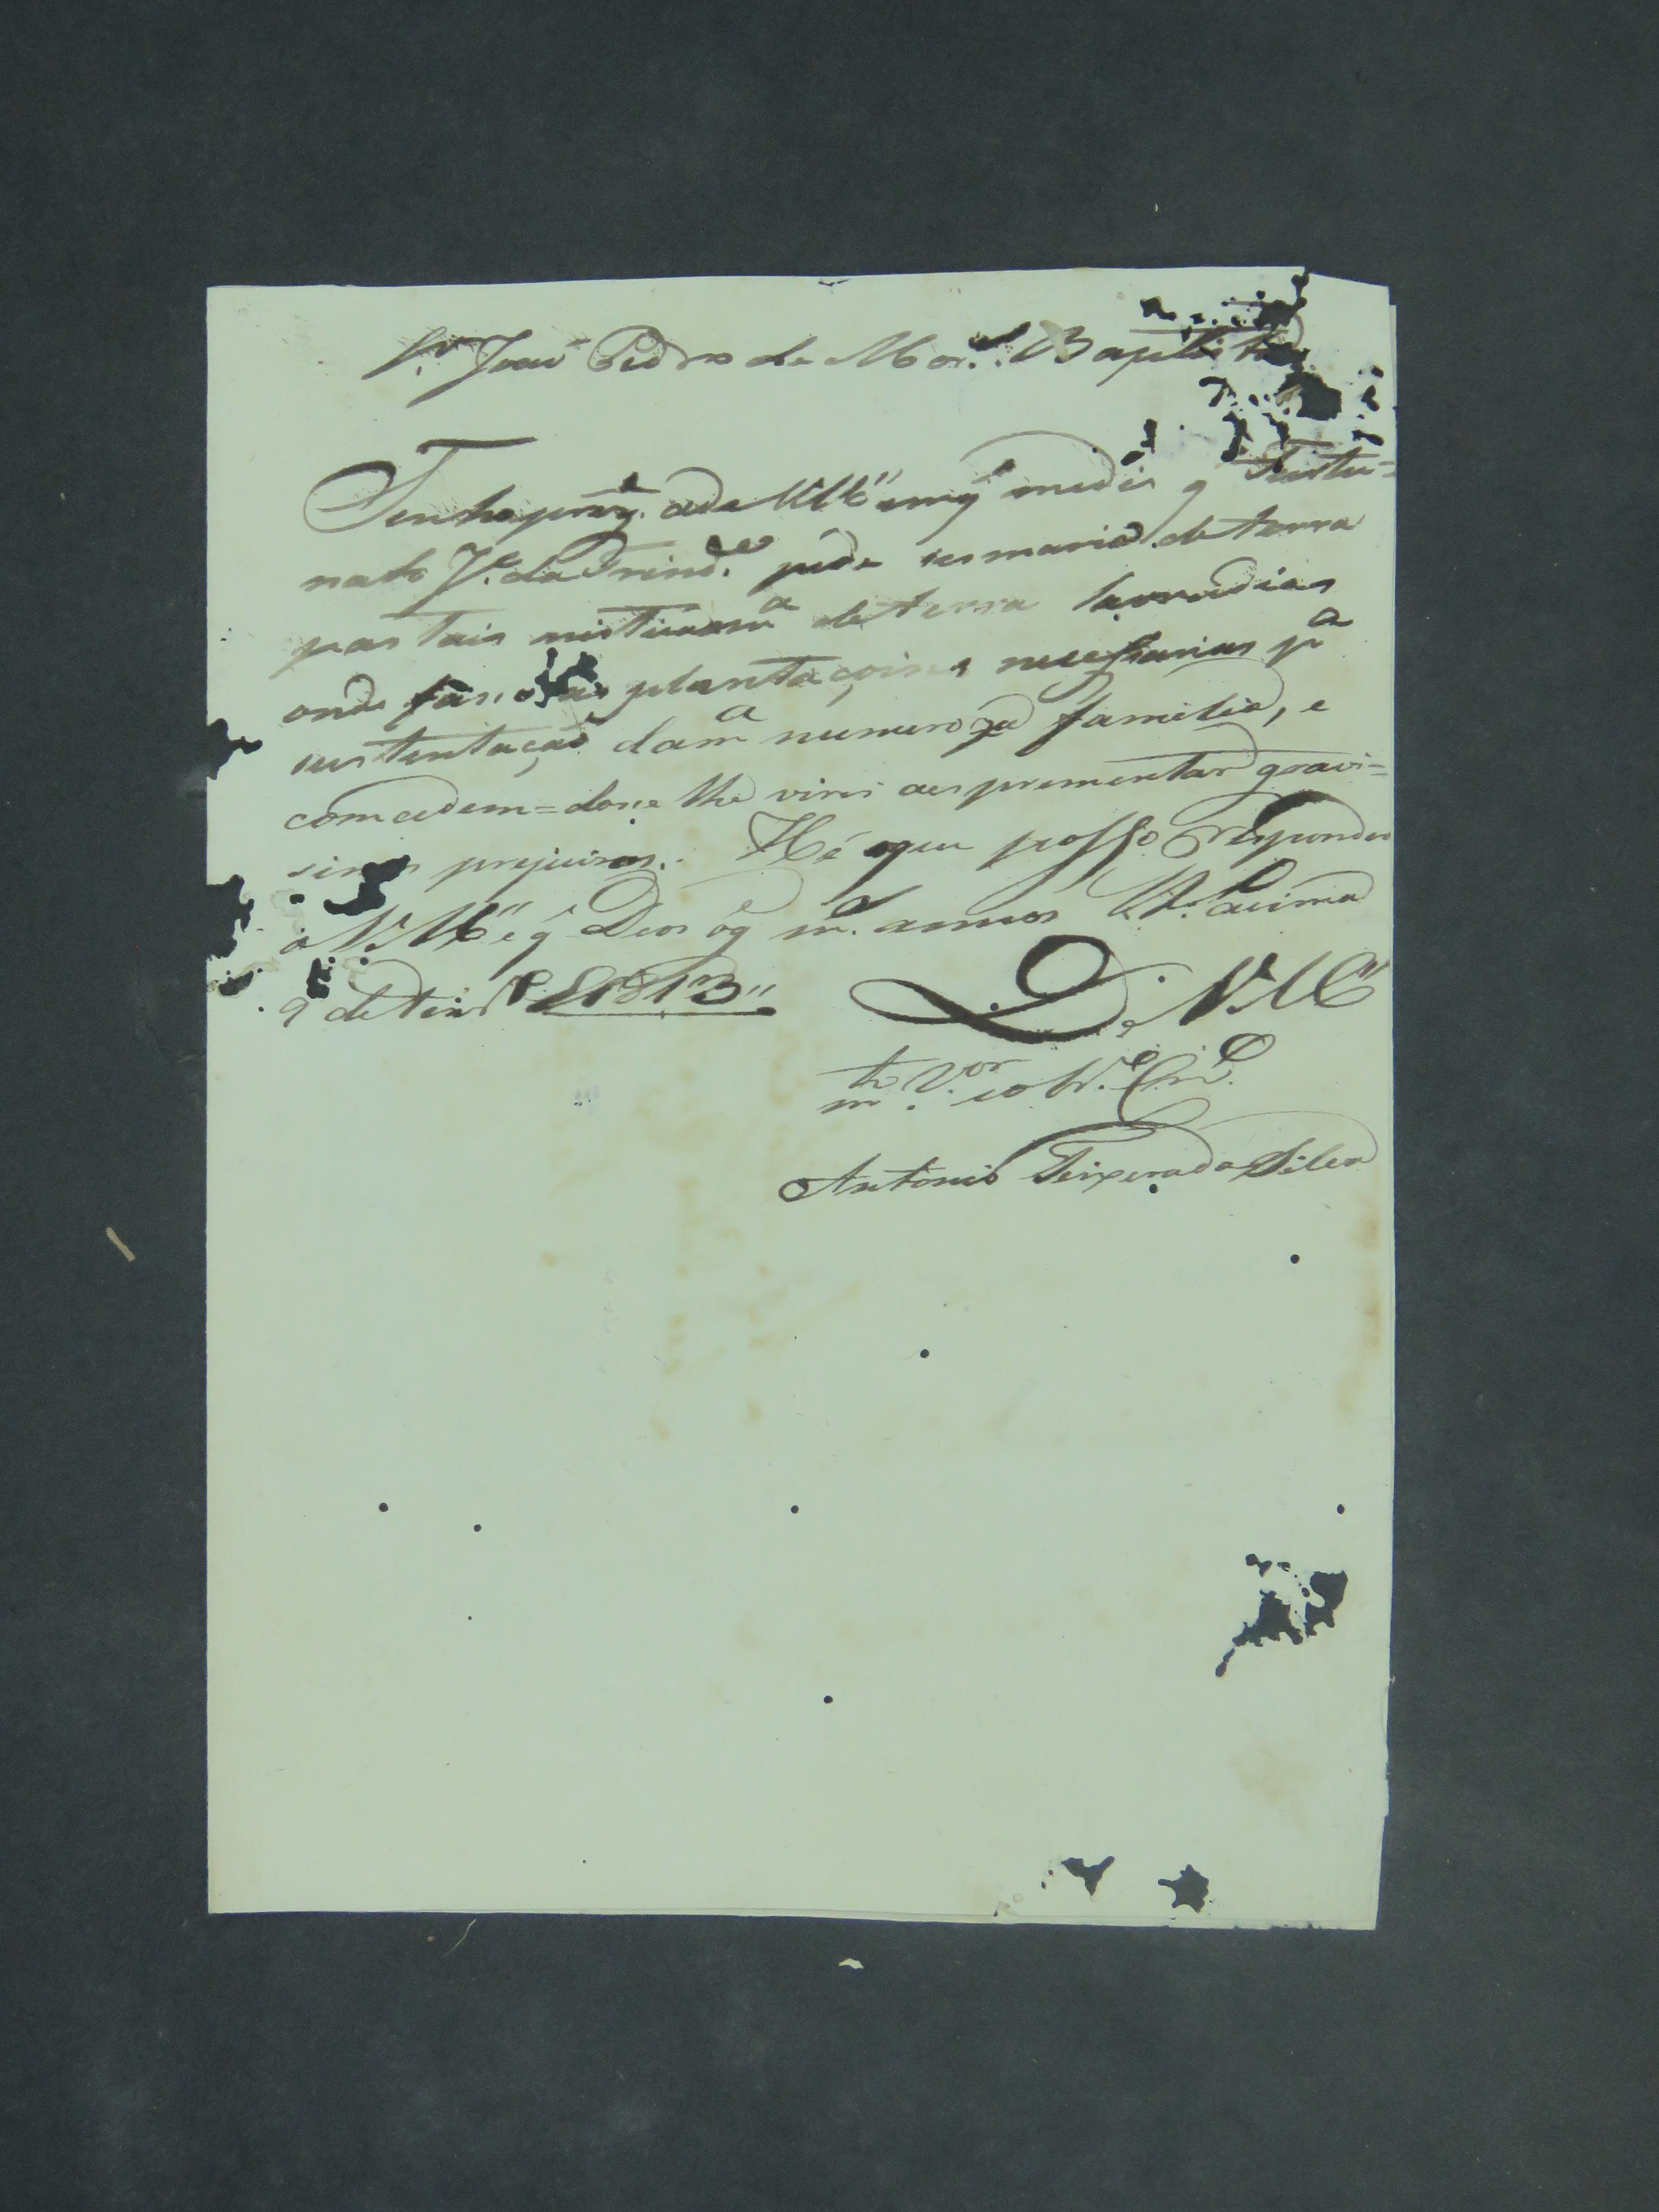 Sr. João Pedro de Mor.es Baptista
Tenho prez.e a de VMce em q medis q Fortu=
nato Je. da Trind.e pede sesmaria de terra
pastais misturam.a de terra lavradias
onde fas as plantacoins necessarias pa
sustentação da ma numeroza familia, e
comcedem=dose lhe virei aesprementar gravi=
simos prejuizos. He oque posso responder
a VMce q Deos g.e m.s annos Va. acima
9 de 1813
De VMce
mto V.or e Cr.o
Antonio Teixerada Silva